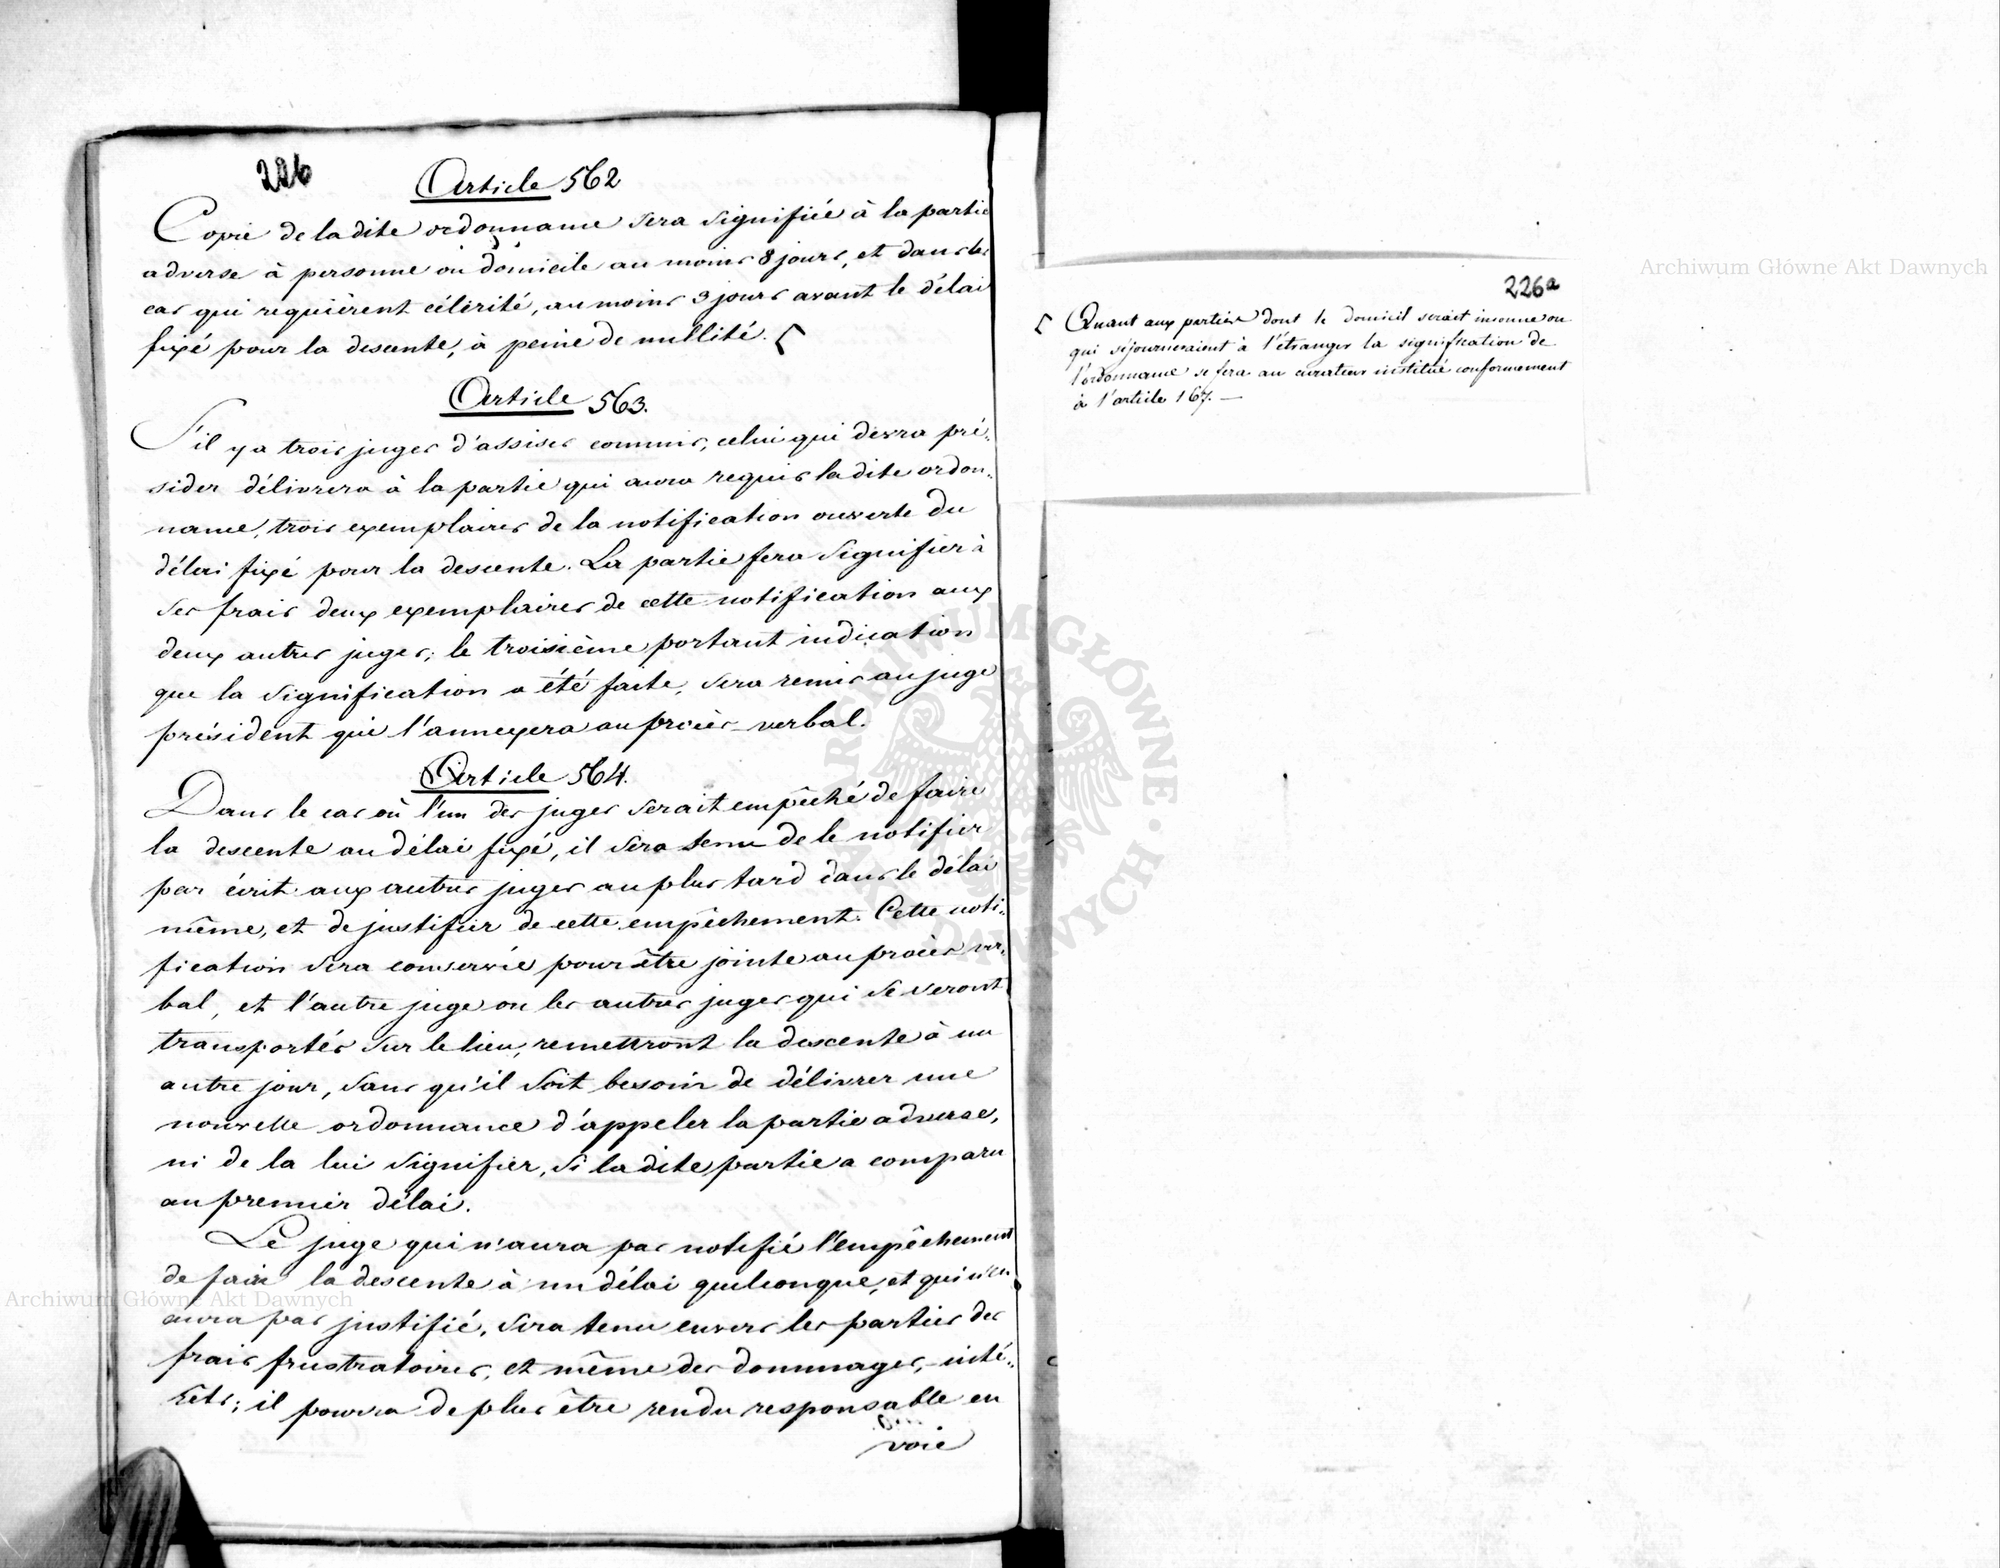 226
Article 562
Copie de la dite ordonnance sera signifiée à la partie
adverse à personne ou domicile au moins 8 jours, et dans les
cas qui requièrent célérité, au moins 3 jours avant le délai
fixé pour la descente, à peine de nullité. [
Article 563.
S'il y a trois juges d'assises commis, celui qui devra pré-
sider délivrera à la partie qui aura requis la dite ordon-
nance, trois exemplaires de la notification ouverte du
délai fixé pour la descente. La partie fera signifier à
ses frais deux exemplaires de cette notification aux
deux autres juges; le troisième portant indication
que la signification a été faite, sera remis au juge
président qui l'annexera au procès-verbal.
Article 564.
Dans le cas où l'un des juges serait empêché de faire
la descente au délai fixé, il sera tenu de le notifier
par écrit aux autres juges au plus tard dans le délai
même, et de justifier de cette empêchement. Cette noti-
fication sera conservée pour être jointe au procès ver-
bal, et l'autre juge ou les autres juges qui se seront
transportés sur le lieu, remettront la descente à un
autre jour, sans qu'il soit besoin de délivrer une
nouvelle ordonnance d'appeler la partie adverse,
ni de la lui signifier, si la dite partie a comparu
au premier délai.
Le juge qui n'aura pas notifié l'empêchement
de faire la descente à un délai quelconque, et qui n'en
aura pas justifié, sera tenu envers les parties des
frais frustratoires, et même des dommages, inté-
rêts; il pourra de plus être rendu responsable en
voie
226a
[ Quant aux parties dont le domicil serait inconnu ou
qui séjourneraient à l'étranger la signification de
l'ordonnance se fera au curateur institué conformement
à l'article 167. —
Archiwum Główne Akt Dawnych
Archiwum Główne Akt Dawnych
ARCHIWUM GŁÓWNE AKT DAWNYCH